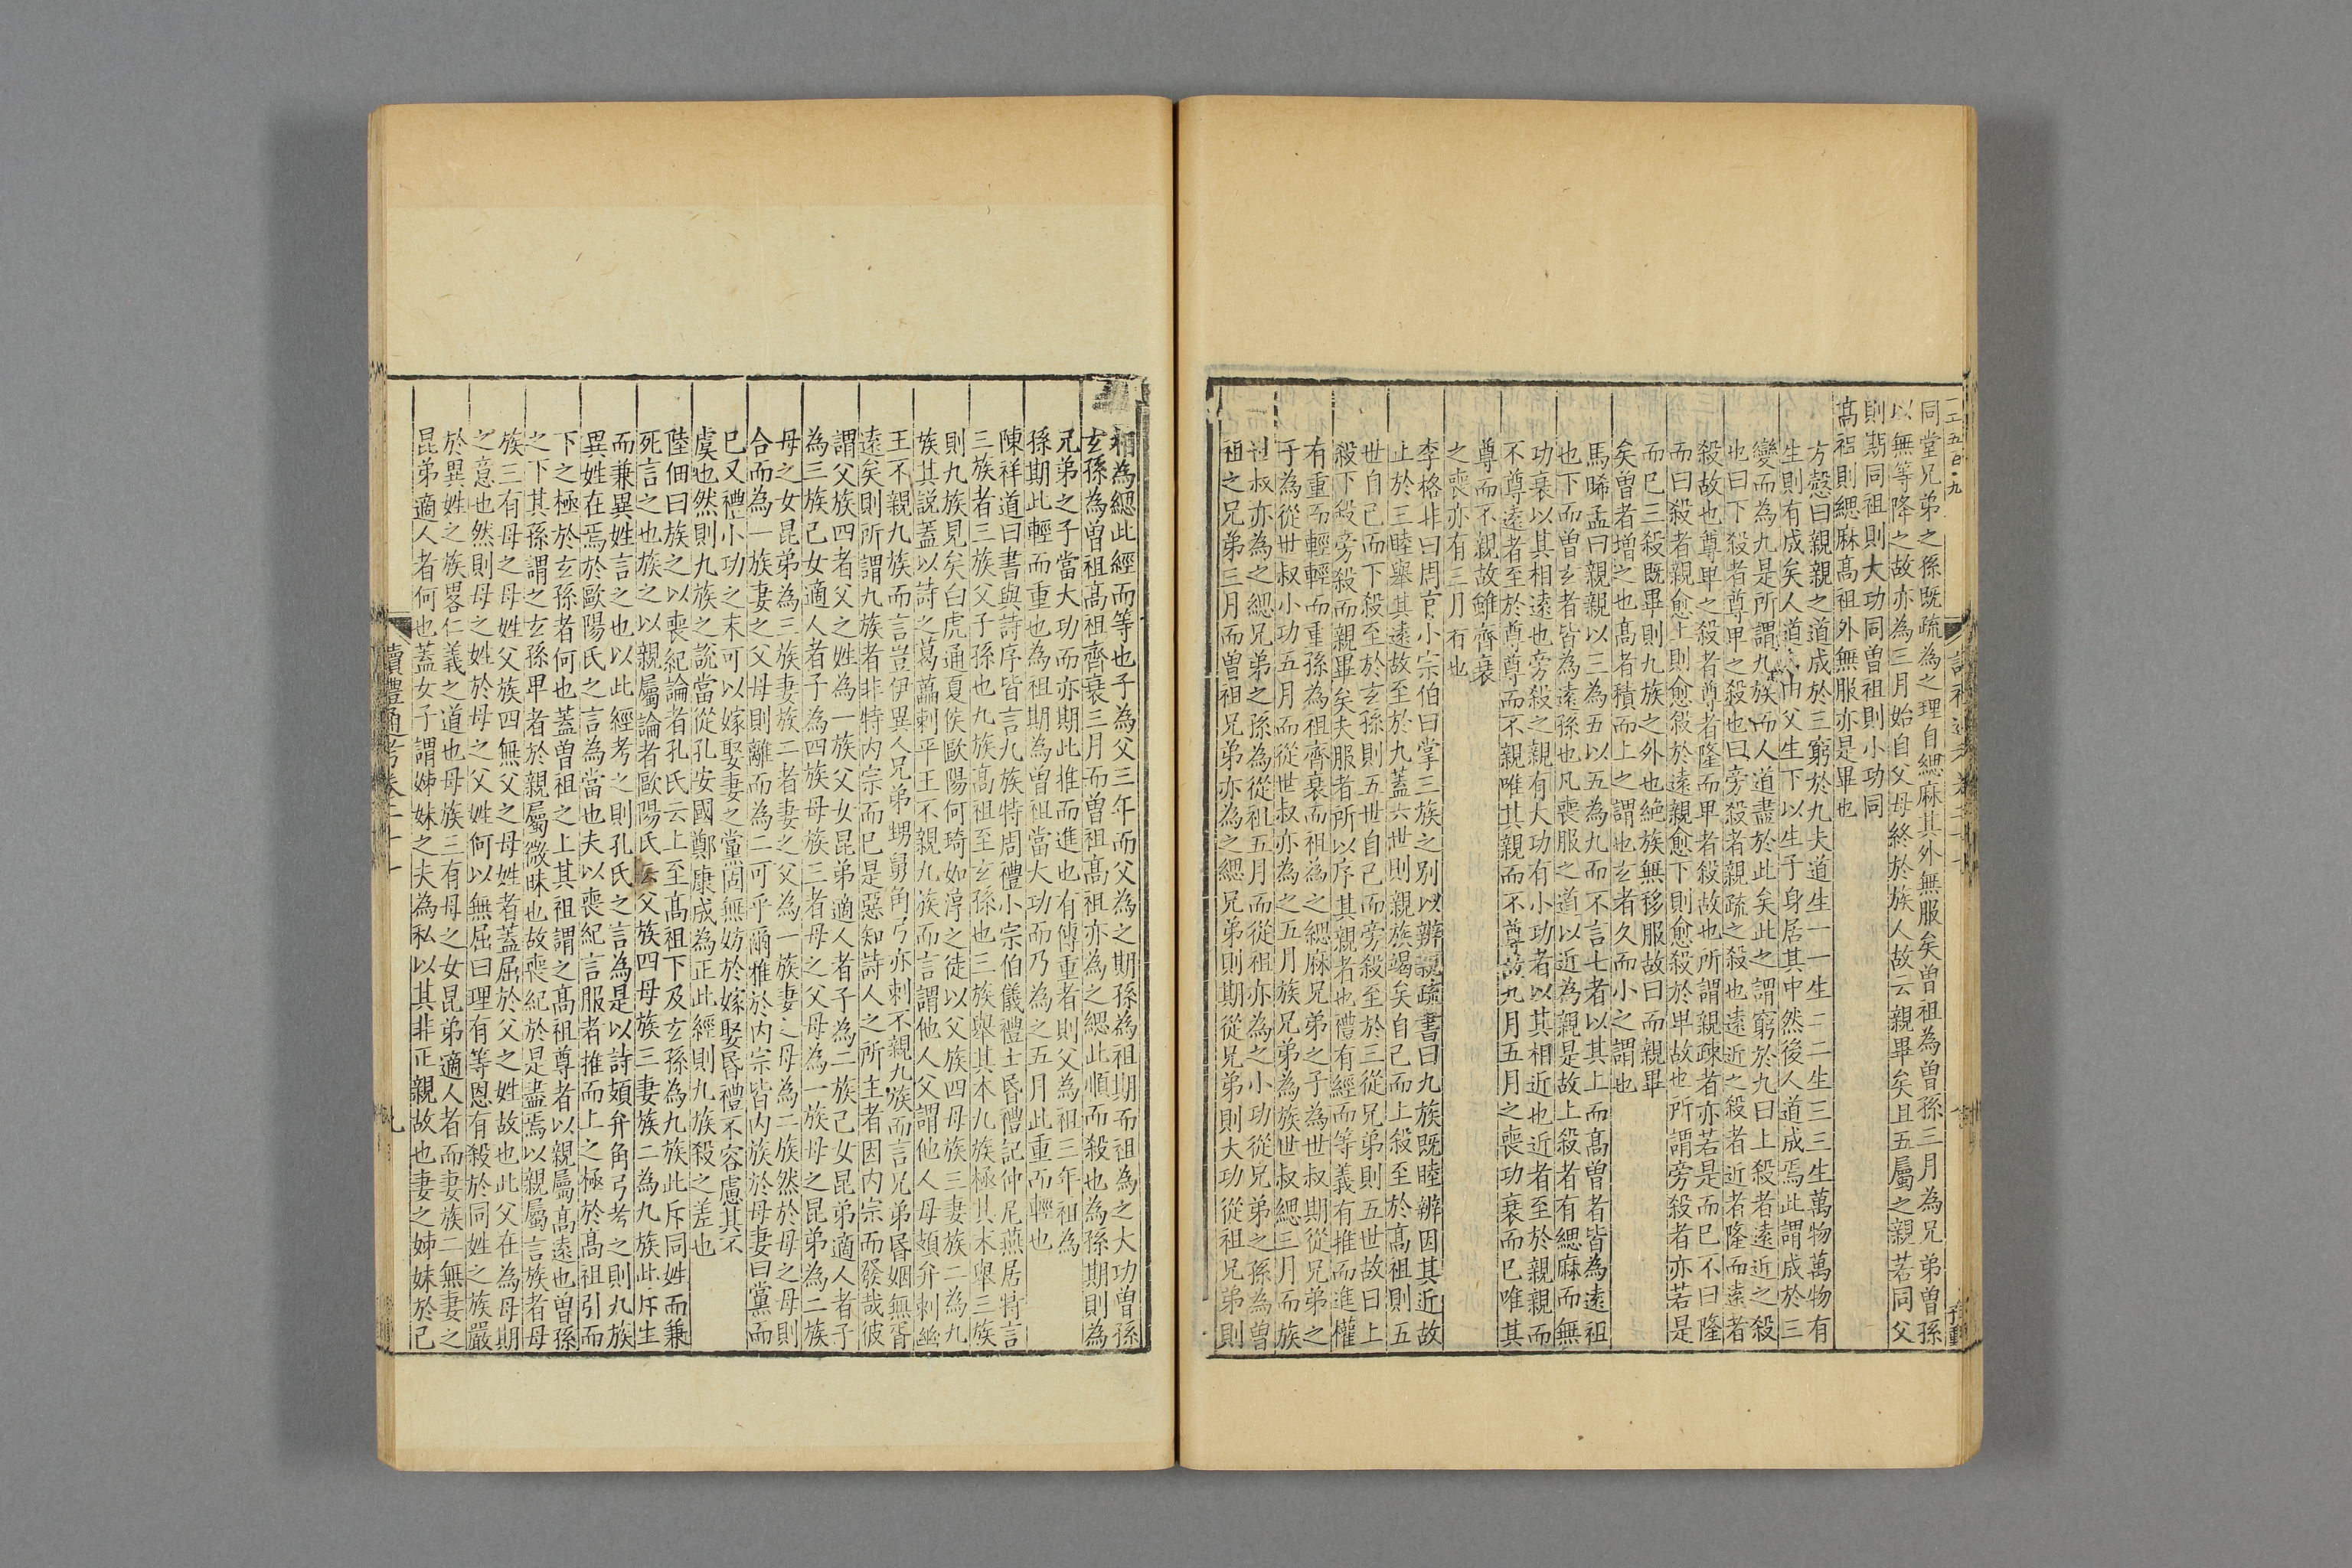 同堂兄弟之孫既疏為之理自緦麻其外無服矣曾祖為曾孫三月為兄弟曾孫
以無等降之故亦為三月始自父母終於族人故云親畢矣且五屬之親若同父
則期同祖則大功同曾祖則小功同
高祖則緦麻高祖外無服亦是畢也
方慤曰親親之道成於三窮於九夫道生一一生二二生三三生萬物萬物有
生則有成矣人道由父生下以生子身居其中然後人道成焉此謂成於三
變而為九是所謂九族而人道盡於此矣此之謂窮於九曰上殺者遠近之殺
也曰下殺者尊卑之殺也曰旁殺者親疏之殺也遠近之殺者近者隆而遠者
殺故也尊卑之殺者尊者隆而卑者殺故也所謂親疎者亦若是而已不曰隆
而曰殺者親愈上則愈殺於遠親愈下則愈殺於卑故也所謂旁殺者亦若是
而已三殺既畢則九族之外也絶族無移服故曰而親畢
矣曾者增之也高者積而上之謂也玄者久而小之謂也
馬晞孟曰親親以三為五以五為九而不言七者以其上而高曾者皆為遠祖
也下而曾玄者皆為遠孫也凡喪服之道以近為親是故上殺者有緦麻而無
功衰以其相遠也旁殺之親有大功有小功者以其相近也近者至於親親而
不尊遠者至於尊尊而不親唯其親而不尊故九月五月之喪功衰而已唯其
尊而不親故雖齊衰
之喪亦有三月者也
李格非曰周官小宗伯曰掌三族之别以辨親疏書曰九族既睦辨因其近故
止於三睦舉其遠故至於九蓋六世則親族竭矣自己而上殺至於高祖則五
世自己而下殺至於玄孫則五世自己而旁殺至於三從兄弟則五世故曰上
殺下殺旁殺而親畢矣夫服者所以序其親者也禮有經而等義有推而進權
有重而輕輕而重孫為祖齊衰而祖為之緦麻兄弟之子為世叔期從兄弟之
子為從世叔小功五月而從世叔亦為之五月族兄弟為族世叔緦三月而族
世叔亦為之緦兄弟之孫為從祖五月而從祖亦為之小功從兄弟之孫為曾
祖之兄弟三月而曾祖兄弟亦為之緦兄弟則期從兄弟則大功從祖兄弟則
相為緦此經而等也子為父三年而父為之期孫為祖期而祖為之大功曾孫
玄孫為曾祖高祖齊衰三月而曾祖高祖亦為之緦此順而殺也為孫期則為
兄弟之子當大功而亦期此推而進也有傳重者則父為祖三年祖為
孫期此輕而重也為祖期為曾祖當大功而乃為之五月此重而輕也
陳祥道曰書與詩序皆言九族特周禮小宗伯儀禮士昏禮記仲尼燕居特言
三族者三族父子孫也九族高祖至玄孫也三族舉其本九族極其末舉三族
則九族見矣白虎通夏侯歐陽何琦如淳之徒以父族四母族三妻族二為九
族其説蓋以詩之葛藟刺平王不親九族而言謂他人父謂他人母頍弁刺幽
王不親九族而言豈伊異人兄弟甥舅角弓亦刺不親九族而言兄弟昏姻無胥
遠矣則所謂九族者非特内宗而已是惡知詩人之所主者因内宗而發哉彼
謂父族四者父之姓為一族父女昆弟適人者子為二族己女昆弟適人者子
為三族己女適人者子為四族母族三者母之父母為一族母之昆弟為二族
母之女昆弟為三族妻族二者妻之父為一族妻之母為二族然於母之母則
合而為一族妻之父母則離而為二可乎爾雅於内宗皆内族於母妻曰黨而
已又禮小功之末可以嫁娶妻之黨固無妨於嫁娶昏禮不容慮其不
虞也然則九族之説當從孔安國鄭康成為正此經則九族殺之差也
陸佃曰族之以喪紀論者孔氏云上至高祖下及玄孫為九族此斥同姓而兼
死言之也族之以親屬論者歐陽氏云父族四母族三妻族二為九族此斥生
而兼異姓言之也以此經考之則孔氏之言為是以詩頍弁角弓考之則九族
異姓在焉於歐陽氏之言為當也夫以喪紀言服者推而上之極於高祖引而
下之極於玄孫者何也蓋曾祖之上其祖謂之高祖尊者以親屬高遠也曾孫
之下其孫謂之玄孫卑者於親屬微昧也故喪紀於是盡焉以親屬言族者母
族三有母之母姓父族四無父之母姓者蓋屈於父之姓故也此父在為母期
之意也然則母之姓於母之父姓何以無屈曰理有等恩有殺於同姓之族嚴
於異姓之族畧仁義之道也母族三有母之女昆弟適人者而妻族二無妻之
昆弟適人者何也蓋女子謂姊妹之夫為私以其非正親故也妻之姊妹於己
讀禮通考卷二十一
九